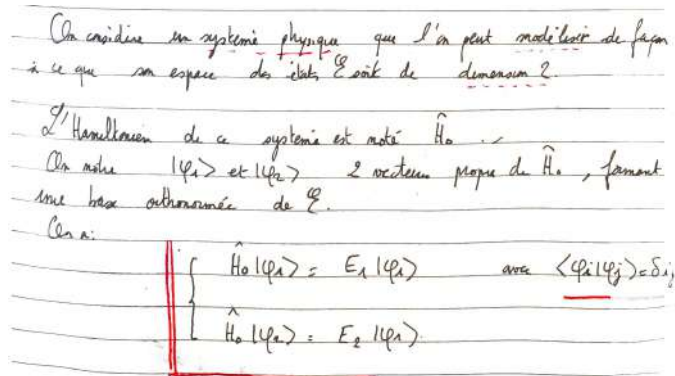 On considère un système physique que l'on peut modéliser de façon
à ce que son espace des états ℰ soit de dimension 2.
L'Hamiltonien de ce système est noté Ĥ₀.
On note |φ₁> et |φ₂> 2 vecteurs propre de Ĥ₀, formant
une base orthonormée de ℰ.
On a:
Ĥ₀|φ₁> = E₁|φ₁> avec <φi|φj>=δij
Ĥ₀|φ₂> = E₂|φ₁>